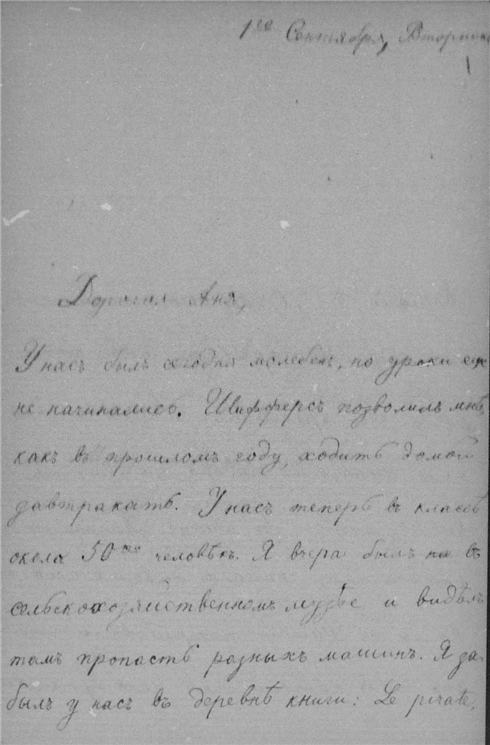 1го Сентября, Вторник
Дорогая Аня,
У насъ былъ сегодня молебен, но уроки еще
не начинались. Шифферсъ позволилъ мнѣ,
какъ въ прошломъ году, ходить домой
завтракать. У насъ теперь въ классѣ
окола 50ти человѣкъ. Я вчера былъ въ
сельскохозяйственномъ музѣе и видѣлъ
тамъ пропасть разныхъ машинъ. Я за-
былъ у насъ въ деревнѣ книги: Le pirate,